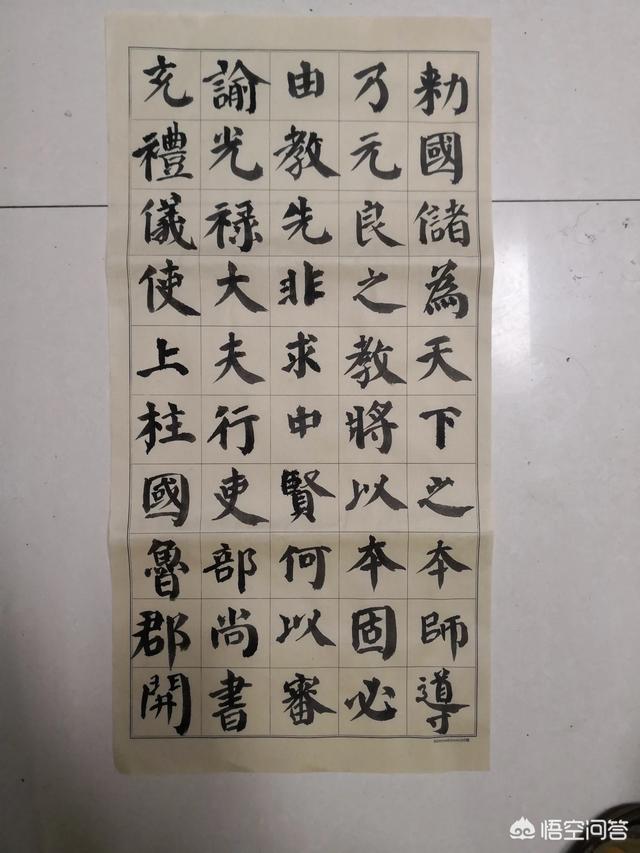 勅國儲為天下之本師導
乃元良之教將以本固必
由教先非求中賢何以審
諭光禄大夫行吏部尚書
充禮儀使上柱國魯郡開
悟空问答